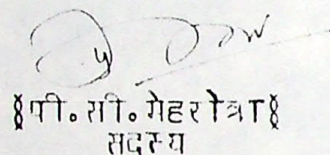 §पी० सी० मेहरोत्रा§
सदस्य